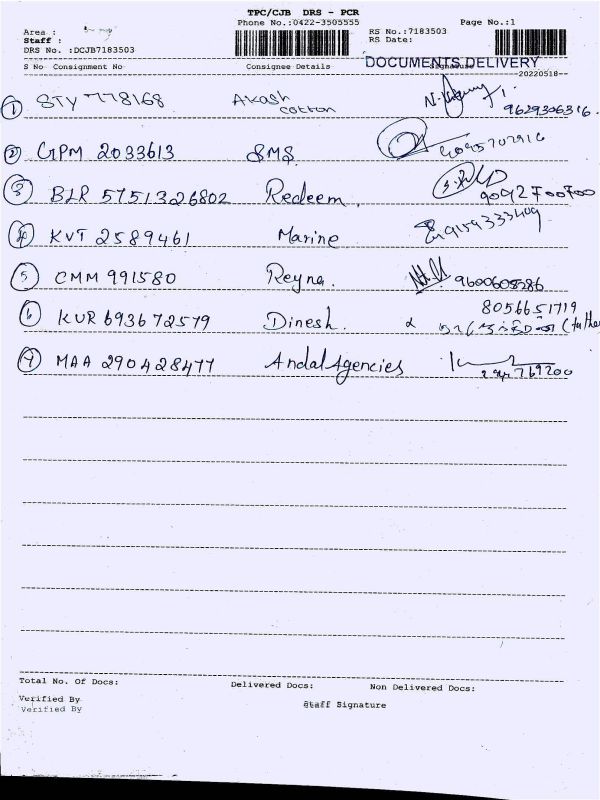 TPC/CJB DRS - PCR
Phone No.:0422-3505555 Page No.:1
Area :
Staff :
RS No.:7183503
RS Date:
DRS No. :DCJB7183503
DOCUMENTS DELIVERY
S No Consignment No Consignee Details Signature
--20220518--
1 STY 778168 Akash cotton 9629306316
2 GPM 2033613 SMS
3 BLR 5751326802 Redeem 9092700700
4 KVT 2589461 Marine 9159333409
5 CMM 991580 Reyna 9600608286
6 KUR 693672579 Dinesh. 8056651719
7 MAA 290428477 Andal Agencies
Total No. Of Docs: Delivered Docs: Non Delivered Docs:
Verified By
Verified By
Staff Signature